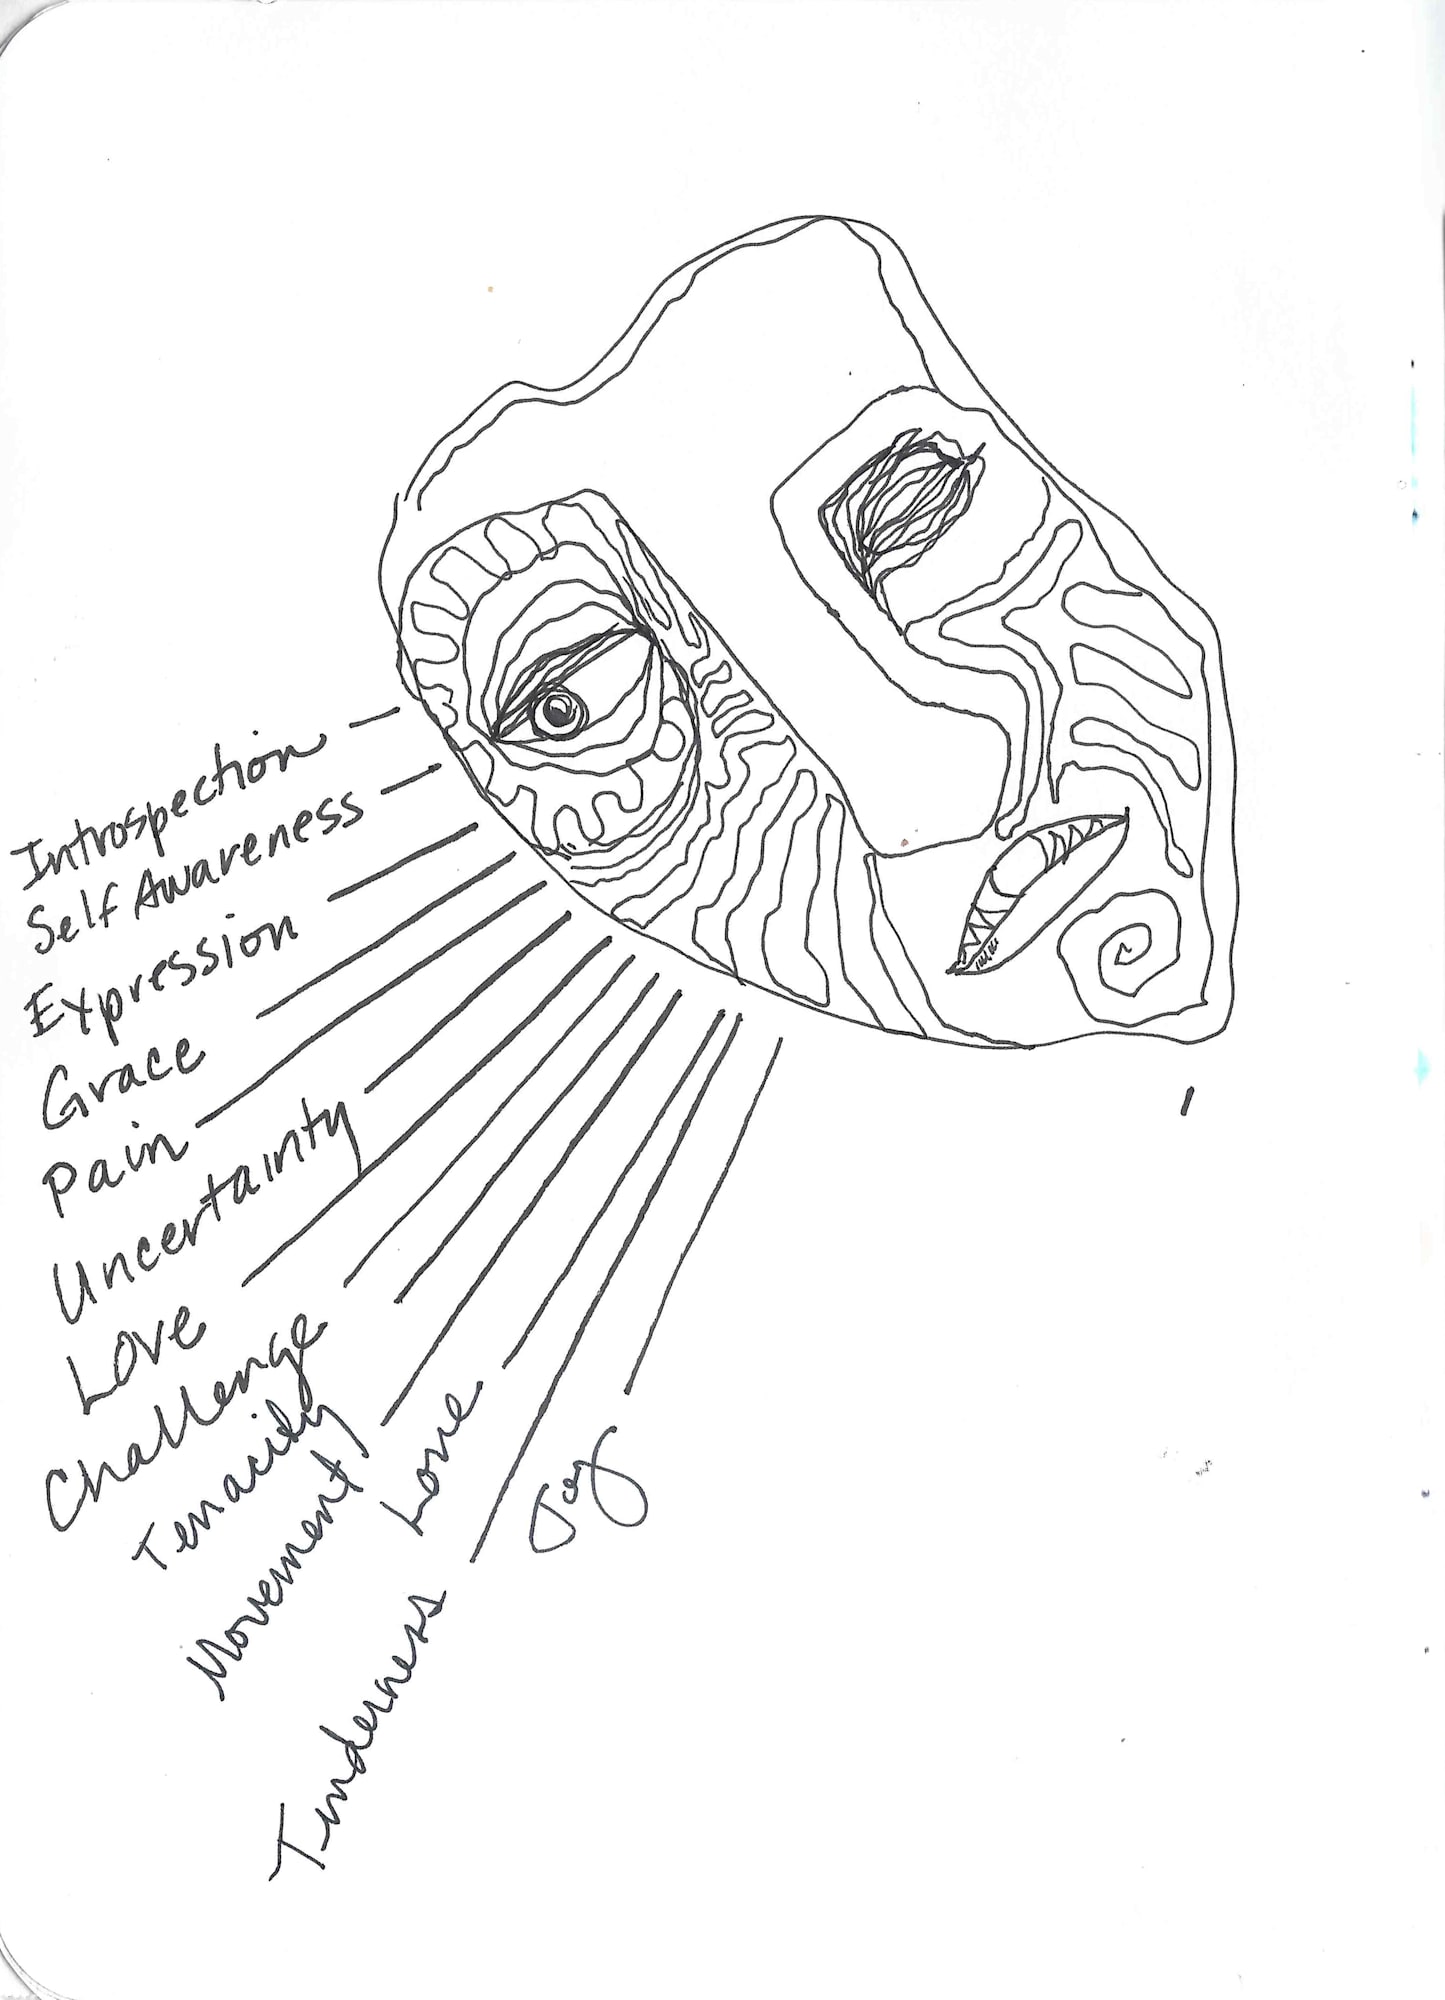 Introspection
Self Awareness
Expression
Grace
Pain
Uncertainty
Love
Challenge
Tenacity
Movement
Love
Tenderness
Joy